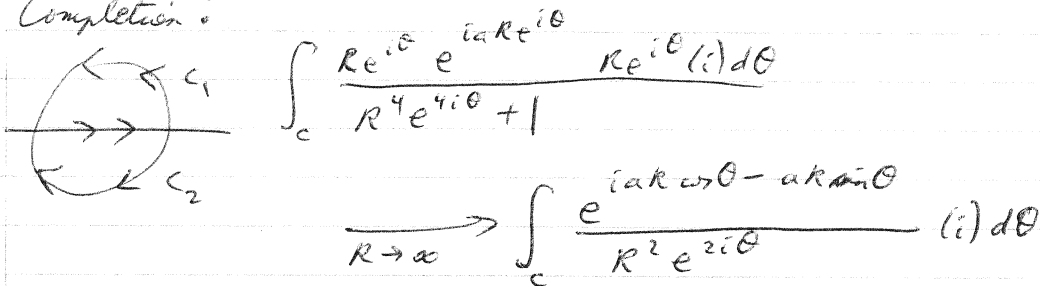 Completion :
C₁ ∫_C Re^{iθ} e^{iaRe^{iθ}} Re^{iθ} (i) dθ / R⁴e^{4iθ} + 1
C₂ ⟶_{R→∞} ∫_C e^{iaR cos θ − aR sin θ} / R²e^{2iθ} (i) dθ